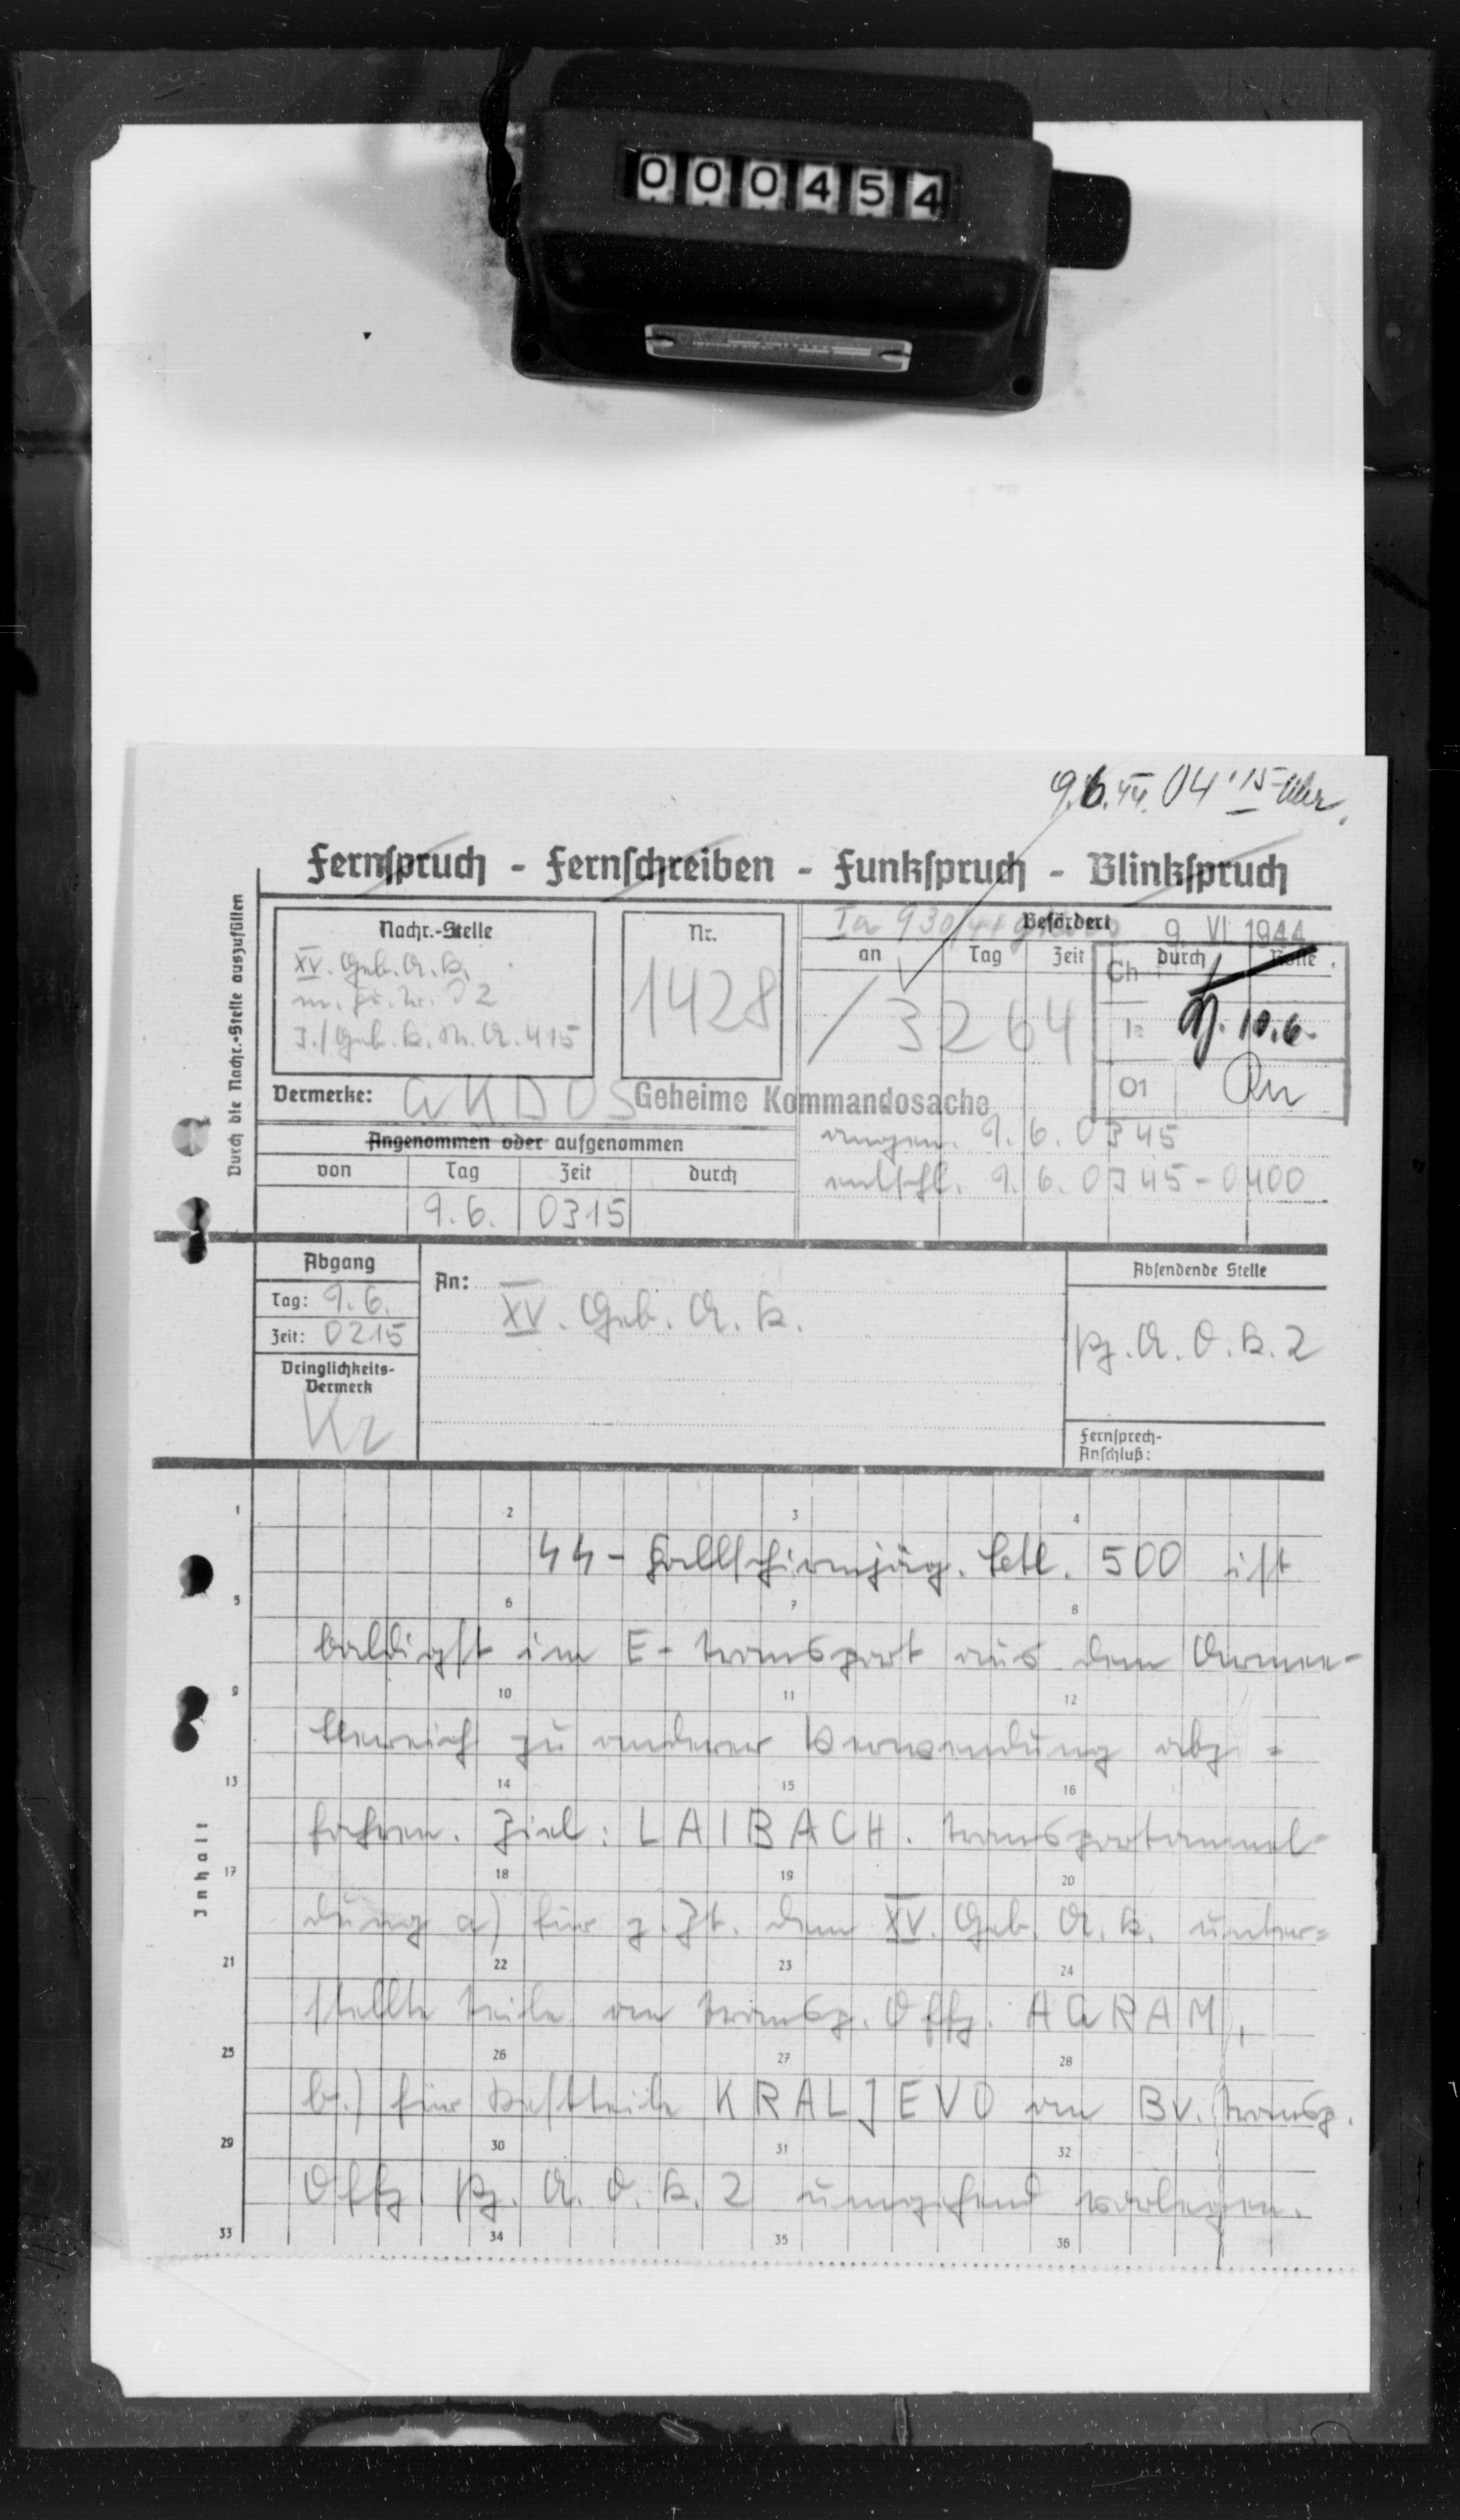 000454
9.6.44. 04.15 Uhr.
Fernspruch - Fernschreiben - Funkspruch - Blinkspruch
Durch die Nachr.-Stelle auszufüllen
Nachr.-Stelle
XV. Geb. A. K.
I./Geb. K. N. A. 415
Nr.
1428
Ia 930/44 gKdos
Befördert
9. VI. 1944
an
Tag
Zeit
durch
Rolle
Ch
/ 3264
Ia
10.6.
01
Vermerke: GKDOS Geheime Kommandosache
Angenommen oder aufgenommen
angen. 9. 6. 0345
entschl. 9. 6. 0345-0400
von
Tag
Zeit
durch
9.6.
0315
Abgang
Tag: 9.6.
Zeit: 0215
Dringlichkeits-
Vermerk
Kr
An:
XV. Geb. A. K.
Absendende Stelle
Pz. A. O. K. 2
Fernsprech-
Anschluß:
Inhalt
1 2 3 4
SS-Fallschirmjäg. Btl. 500 ist
5 6 7 8
baldigst im E-Transport aus dem Armee-
9 10 11 12
bereich zu anderer Verwendung abzu=
13 14 15 16
fahren. Ziel: LAIBACH. Transportanmel=
17 18 19 20
dung a) für z. Zt. dem XV. Geb. A. K. unter=
21 22 23 24
stellte Teile an Transp. Offz. AGRAM,
25 26 27 28
b.) für Restteile KRALJEVO an Bv. Transp.
29 30 31 32
Offz. Pz. A. O. K. 2 umgehend vorlegen.
33 34 35 36